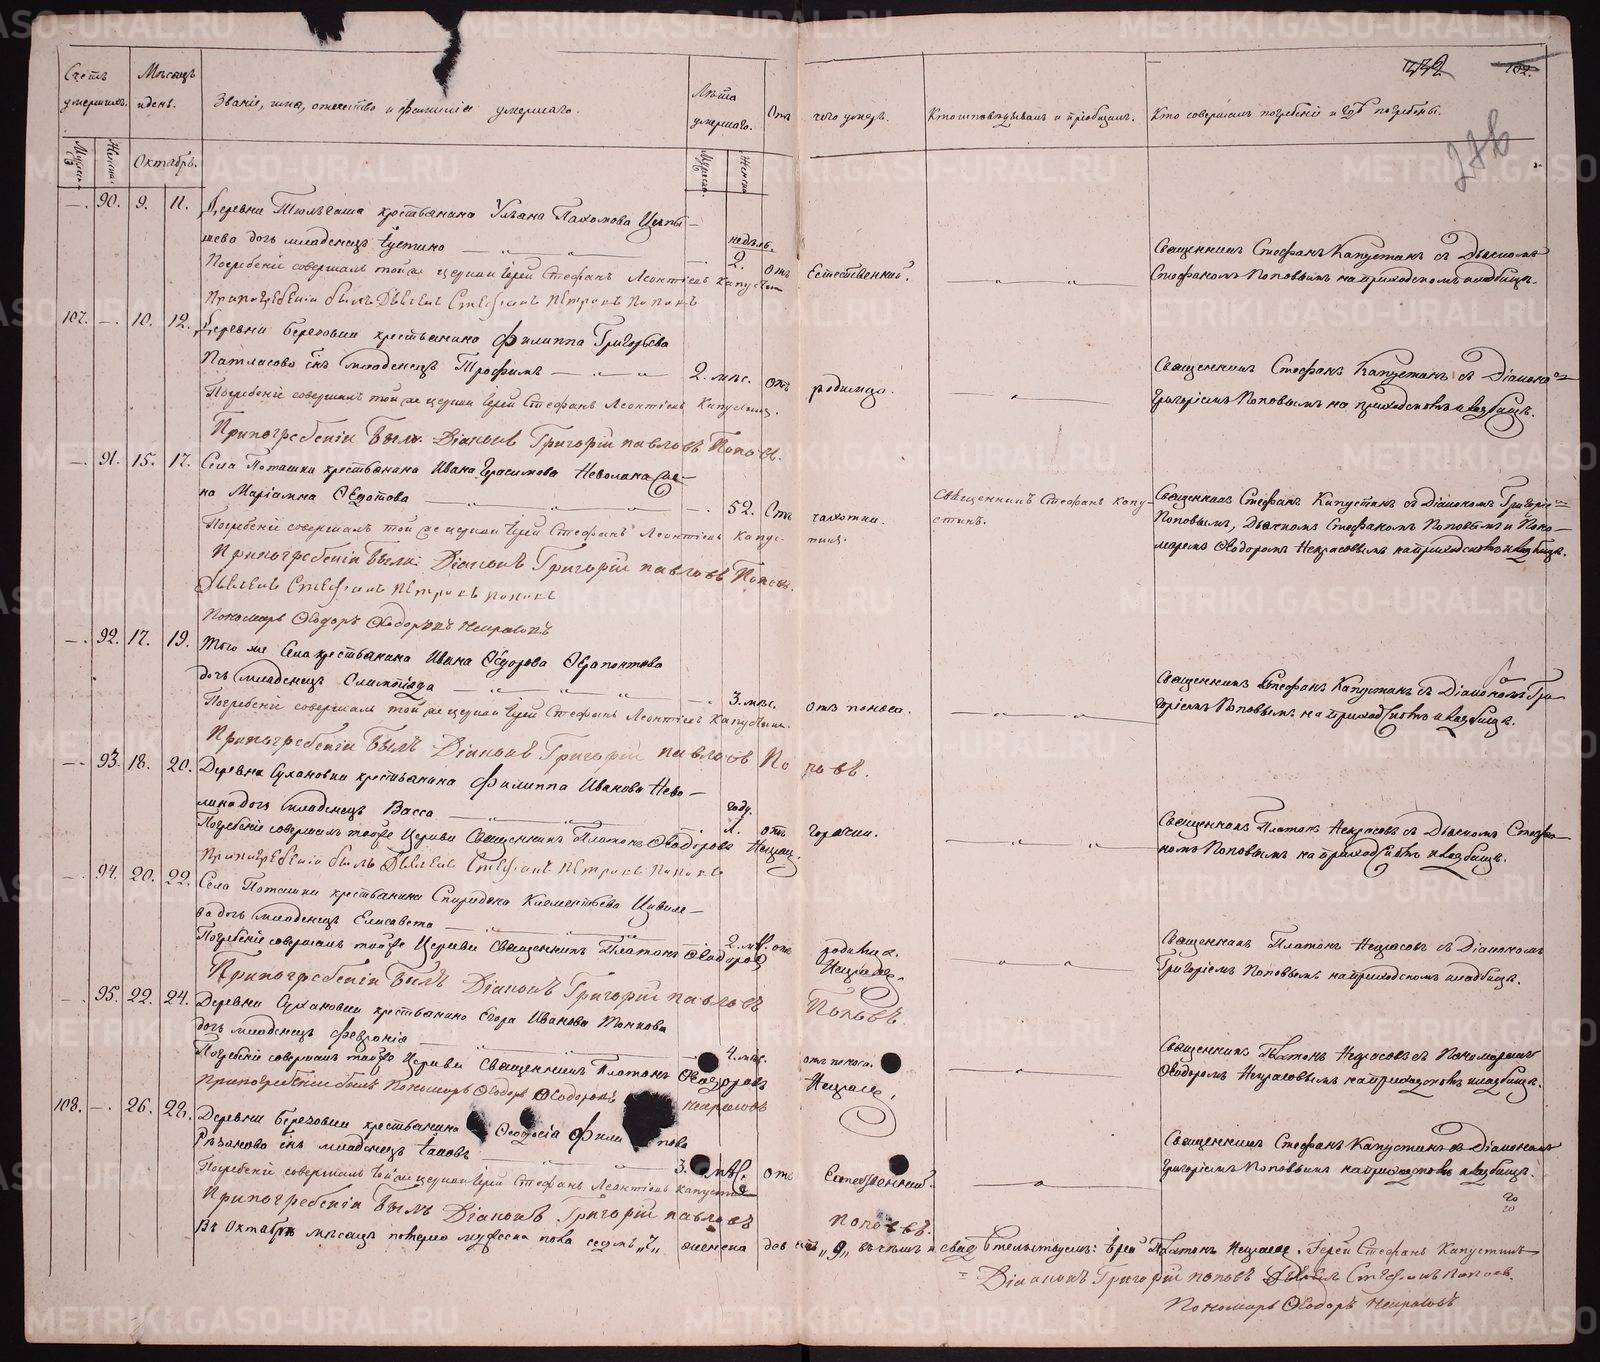 Счетъ умершихъ.
Мѣсяцъ и день.
Званіе, имя, отечество и фамилія умершаго.
Лѣта умершаго.
Отъ чего умеръ.
Кто исповѣдывалъ и пріобщалъ.
Кто совершалъ погребеніе и гдѣ погребены.
Октябрь.
—. 90. 9. 11. Деревни крестьянина Ульяна Пахомова
дочь младенецъ недѣль.
Погребеніе совершалъ той же церкви Іерей Стефанъ Леонтіевъ Капустинъ 2. отъ Естественной.
При погребеніи былъ Дьячекъ Стефанъ Петровъ Поповъ
Священникъ Стефанъ Капустинъ съ Дьячкомъ
Стефаномъ Поповымъ на приходскомъ кладбищѣ.
107. —. 10. 12. Деревни Березовки крестьянина Филиппа Григорьева
Патласова сынъ младенецъ Трофимъ 2. мѣс. отъ родимца.
Погребеніе совершалъ той же церкви Іерей Стефанъ Леонтіевъ Капустинъ.
При погребеніи былъ Діаконъ Григорій Павловъ Поповъ.
Священникъ Стефанъ Капустинъ съ Діакономъ
Григоріемъ Поповымъ на приходскомъ кладбищѣ.
—. 91. 15. 17. Села Поташки крестьянина Ивана Герасимова Неволина же-
на Маріамна Ѳедотова —. 52. Отъ чахотки.
Погребеніе совершалъ той же церкви Іерей Стефанъ Леонтіевъ Капус-
тинъ.
При погребеніи были: Діаконъ Григорій Павловъ Поповъ.
Дьячекъ Стефанъ Петровъ Поповъ
Пономарь Ѳеодоръ Ѳеодоровъ Некрасовъ
Священникъ Стефанъ Капу-
стинъ.
Священникъ Стефанъ Капустинъ съ Діакономъ Григоріе-
Поповымъ, Дьячкомъ Стефаномъ Поповымъ и Поно-
маремъ Ѳеодоромъ Некрасовымъ на приходскомъ кладбищѣ.
—. 92. 17. 19. Того же Села крестьянина Ивана Ѳедорова Ѳерапонтова
дочь младенецъ Олимпіада 3. мѣс. отъ поноса.
Погребеніе совершалъ той же церкви Іерей Стефанъ Леонтіевъ Капустинъ.
При погребеніи былъ Діаконъ Григорій Павловъ Поповъ.
Священникъ Стефанъ Капустинъ съ Діакономъ Гри-
горіемъ Поповымъ на приходскомъ кладбищѣ.
—. 93. 18. 20. Деревни Сухановки крестьянина Филиппа Иванова Нево-
лина дочь младенецъ Васса году.
1. отъ горячки.
Погребеніе совершалъ тойже Церкви Священникъ Платонъ Ѳеодоровъ Некрас.
При погребеніи былъ Дьячекъ Стефанъ Петровъ Поповъ
Священникъ Платонъ Некрасовъ съ Дьячкомъ Стефа-
номъ Поповымъ на приходскомъ кладбищѣ.
—. 94. 20. 22. Села Поташки крестьянина Спиридона Клементьева
дочь младенецъ Елисавета 2. мѣс. отъ родимца.
Погребеніе совершалъ тойже Церкви Священникъ Платонъ Ѳеодоровъ Некрасов.
При погребеніи былъ Діаконъ Григорій Павловъ Поповъ.
Священникъ Платонъ Некрасовъ съ Діакономъ
Григоріемъ Поповымъ на приходскомъ кладбищѣ.
—. 95. 22. 24. Деревни Сухановки крестьянина Егора Иванова Тонкова
дочь младенецъ Февронія 4. мѣс. отъ поноса.
Погребеніе совершалъ тойже Церкви Священникъ Платонъ Ѳеодоровъ Некрасов.
При погребеніи былъ Пономарь Ѳеодоръ Ѳеодоровъ Некрасовъ
Священникъ Платонъ Некрасовъ съ Пономаремъ
Ѳеодоромъ Некрасовымъ на приходскомъ кладбищѣ.
108. —. 26. 28. Деревни Березовки крестьянина Ѳеодосія Фили пова
Рязанова сынъ младенецъ Іаковъ 3. мѣс. отъ Естественной.
Погребеніе совершалъ той же церкви Іерей Стефанъ Леонтіевъ Капустинъ
При погребеніи былъ Діаконъ Григорій Павловъ Поповъ.
Священникъ Стефанъ Капустинъ съ Діакономъ
Григоріемъ Поповымъ на приходскомъ кладбищѣ.
Въ Октябрѣ мѣсяцѣ померло мужеска пола семь „7„ женска девять „9„ въ чемъ и свидѣтельствуемъ: Іерей Платонъ Некрасовъ. Іерей Стефанъ Капустинъ
Діаконъ Григорій Поповъ Дьячекъ Стефанъ Поповъ.
Пономарь Ѳеодоръ Некрасовъ
METRIKI.GASO-URAL.RU